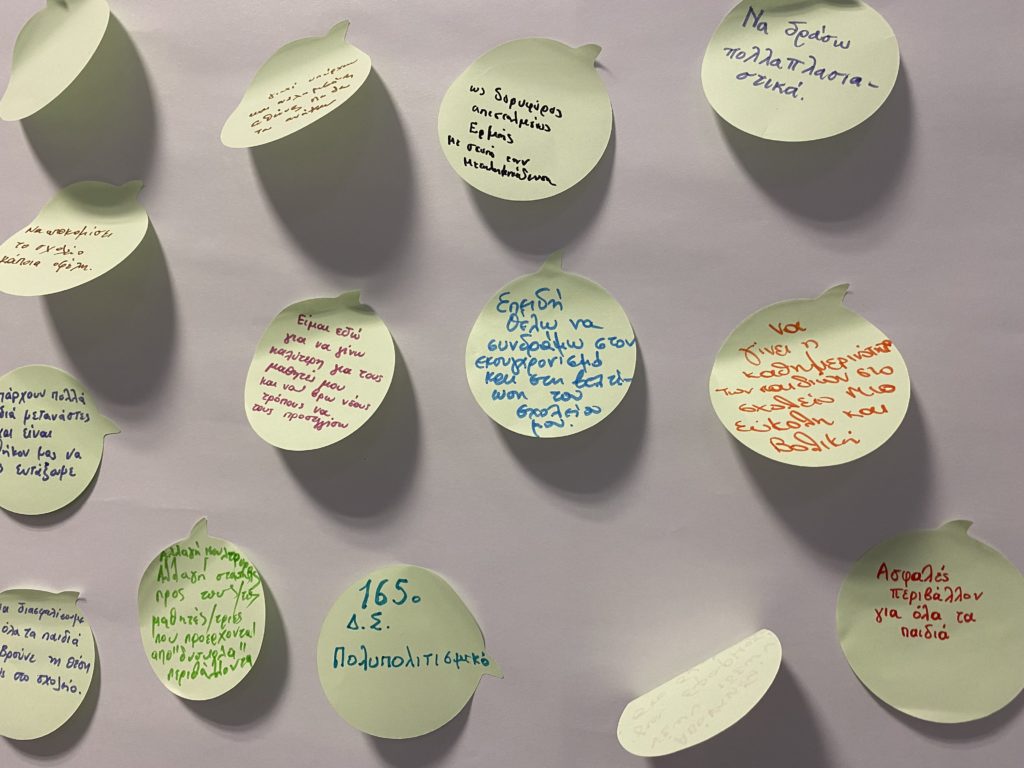 Να δράσω
πολλαπλασια-
στικά.
ως δορυφόρος
απεσταλμένος
Ερμής
Με σκοπό την
Μεταλαμπάδευση
Να αποκομίσει
το σχολείο
κάποια οφέλη.
Είμαι εδώ
για να γίνω
καλύτερη για τους
μαθητές μου
και να βρω νέους
τρόπους να
τους προσεγγίσω
Επειδή
θέλω να
συνδράμω στον
εκσυγχρονισμό
και στη βελτί-
ωση του
σχολείου
μου.
να
γίνει η
καθημερινότητα
των παιδιών στο
σχολείο πιο
εύκολη και
βολική
πάρχουν πολλά
διά μετανάστες
και είναι
θήκον μας να
ς εντάξουμε
Αλλαγή κουλτούρας
Αλλαγή στάσης
προς τους/τις
μαθητές/τριες
που προέρχονται
από "δύσκολα"
περιβάλλοντα
165ο
Δ.Σ.
Πολυπολιτισμικό
Ασφαλές
περιβάλλον
για όλα τα
παιδιά
να διασφαλίσουμε
όλα τα παιδιά
βρούνε τη θέση
ς στο σχολείο.